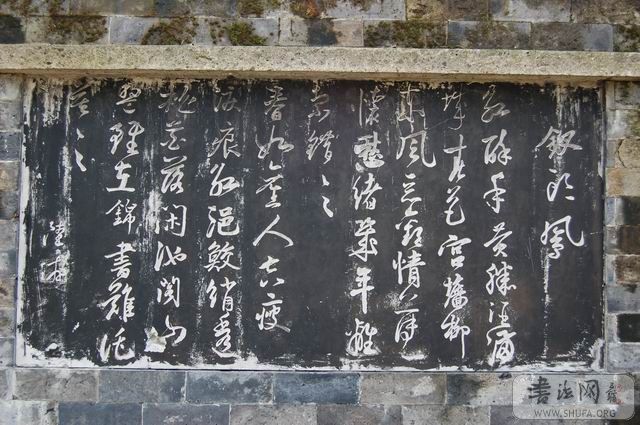 釵头鳳
紅酥手黄縢酒满
城春色宫墙柳
東風惡歡情薄
懷愁緒幾年離
索錯〻〻
春如舊人空瘦
淚痕紅浥鮫綃透
桃花落闲池閣山
盟雖在錦書難託
莫〻〻
陸游
书法网
WWW.SHUFA.ORG